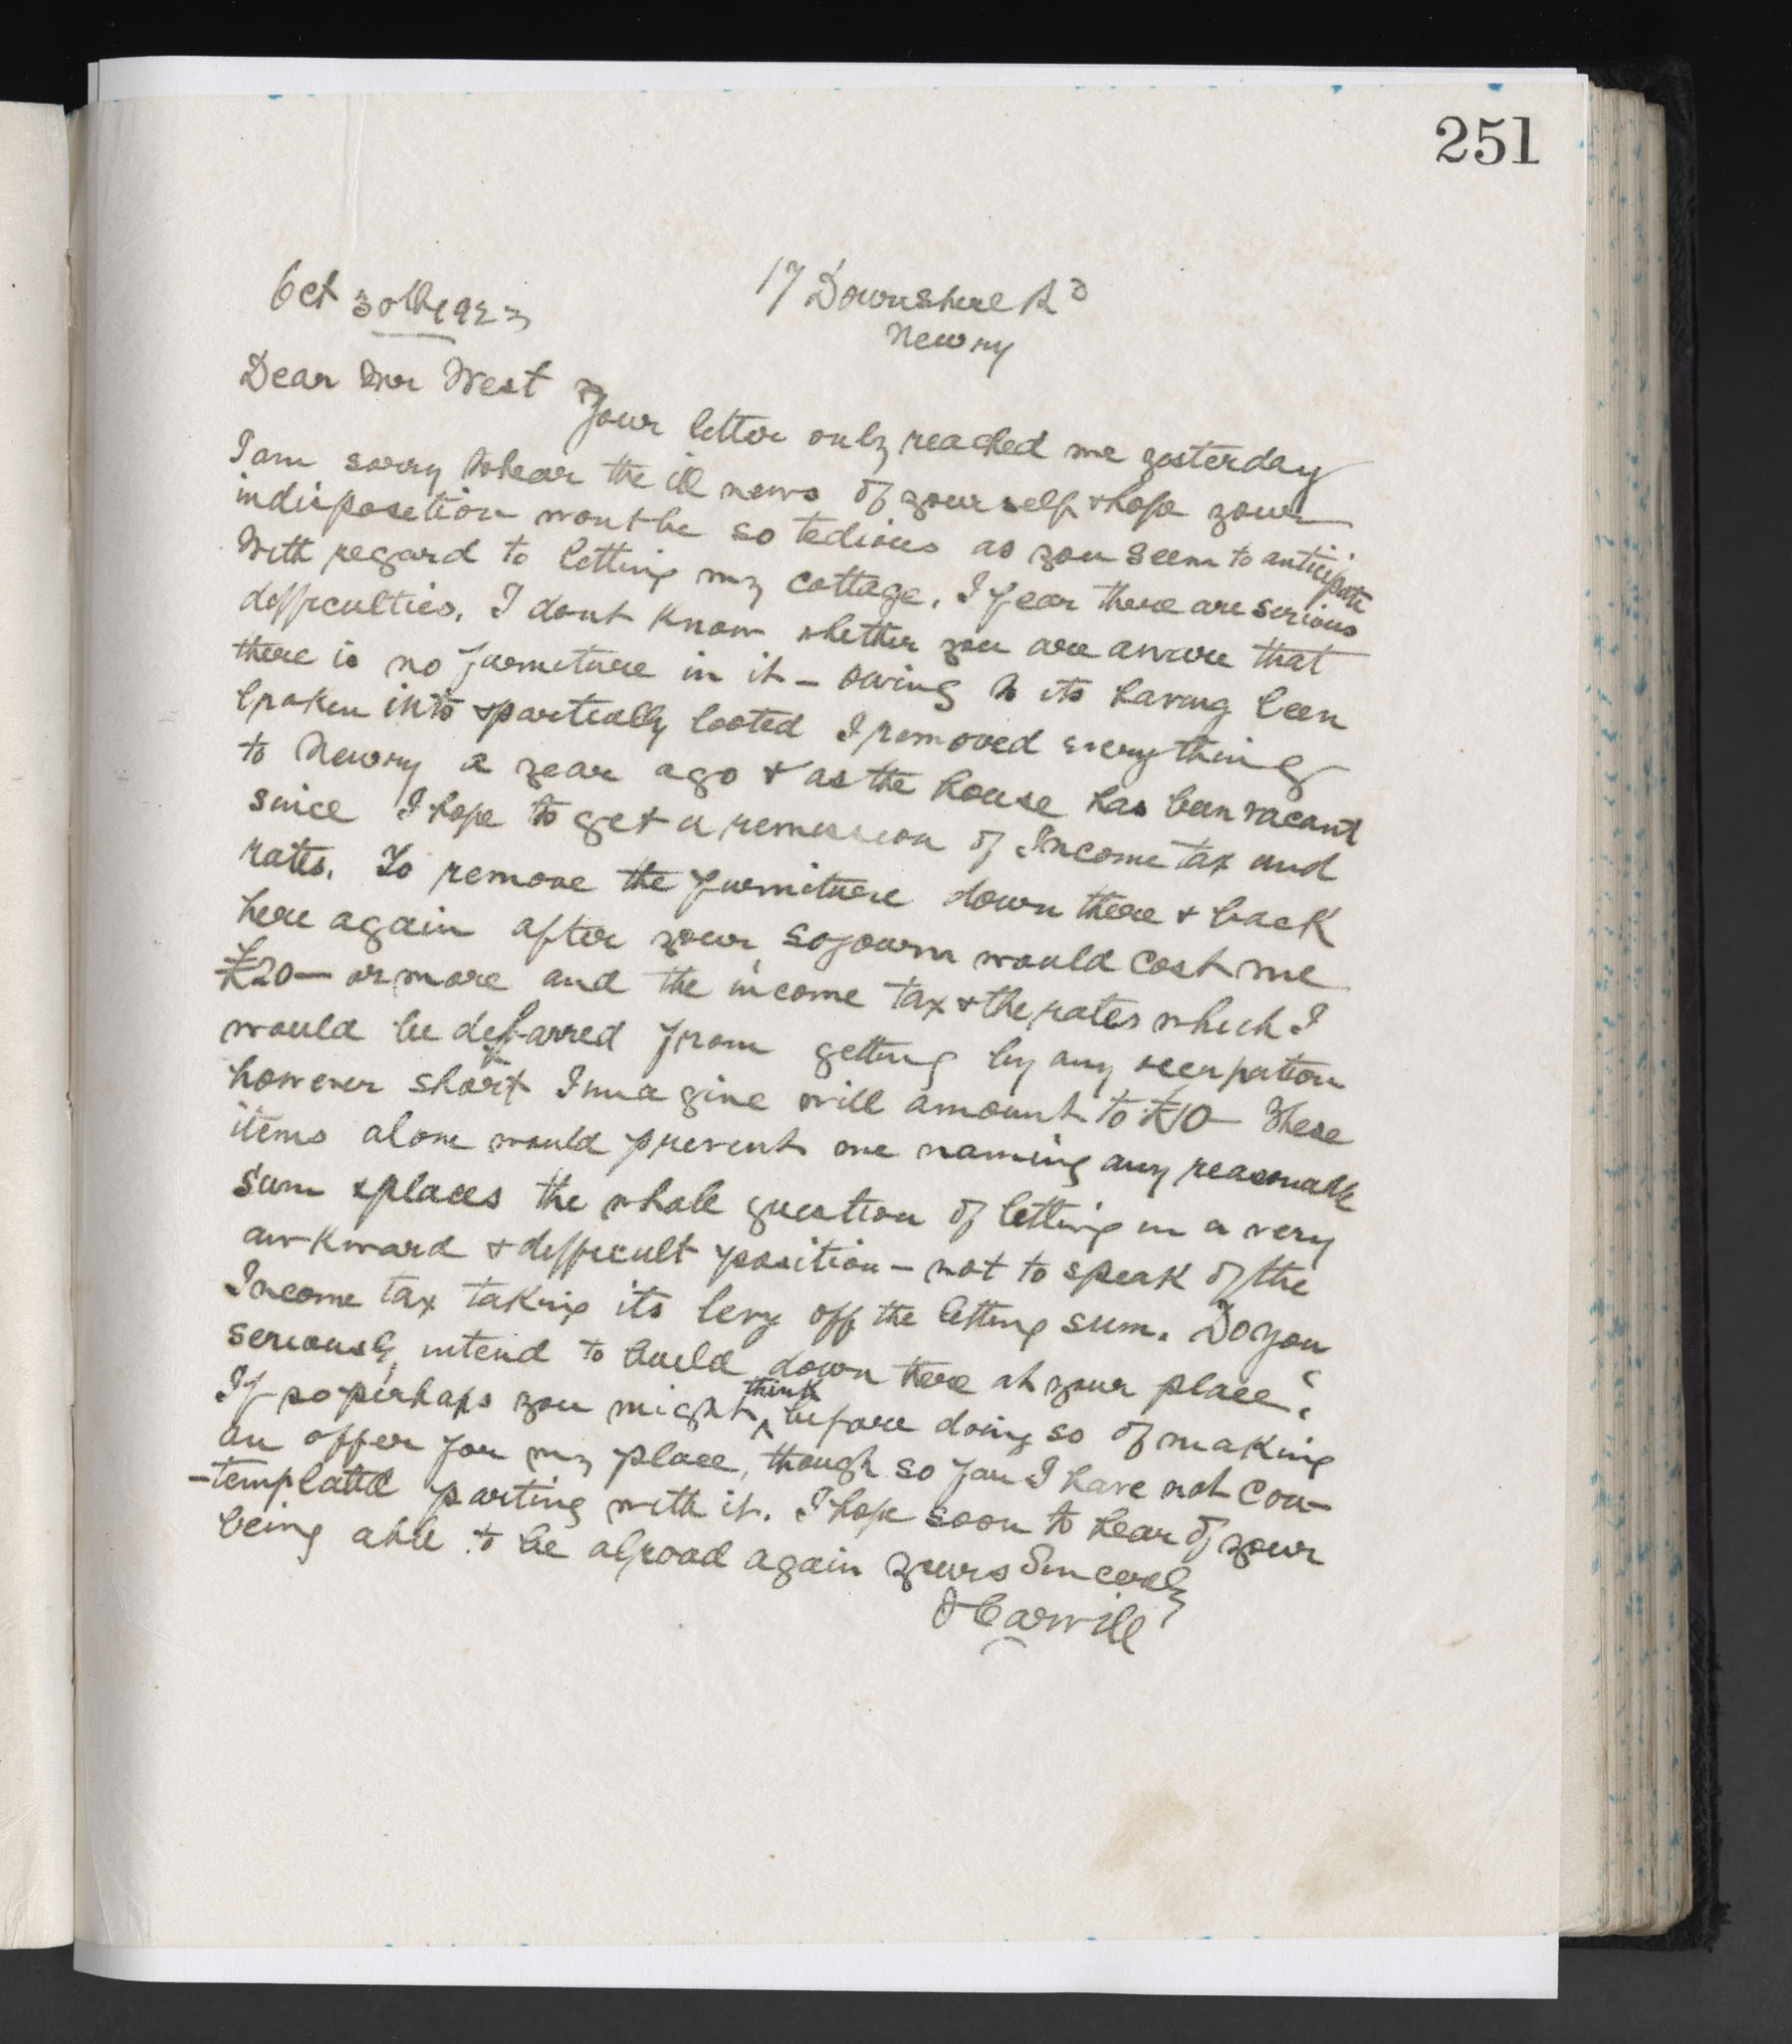 251
Oct 30th 1923
17 Downshire Rd
Newry
Dear Mr West
Your letter only reached me yesterday
I am sorry to hear the ill news of yourself & hope your
indisposition wont be so tedious as you seem to anticipate
With regard to letting my cottage, I fear there are serious
difficulties. I dont know whether you are aware that
there is no furniture in it - owing to its having been
broken into & partially looted I removed everything
to Newry a year ago & as the house has been vacant
since I hope to get a remission of Income tax and
rates. To remove the furniture down there & back
here again after your sojourn would cost me
£20 - or more and the income tax & the rates which I
would be debarred from getting by any occupation
however short I imagine will amount to £10 - These
items alone would prevent me naming any reasonable
sum & places the whole question of letting in a very
awkward & difficult position - not to speak of the
Income tax taking its levy off the letting sum. Do you
seriously intend to build down there at your place?
If so perhaps you might think before doing so of making
an offer for my place, though so far I have not con-
-templated parting with it. I hope soon to hear of your
being able to be abroad again yours Sincerely
J Carvill